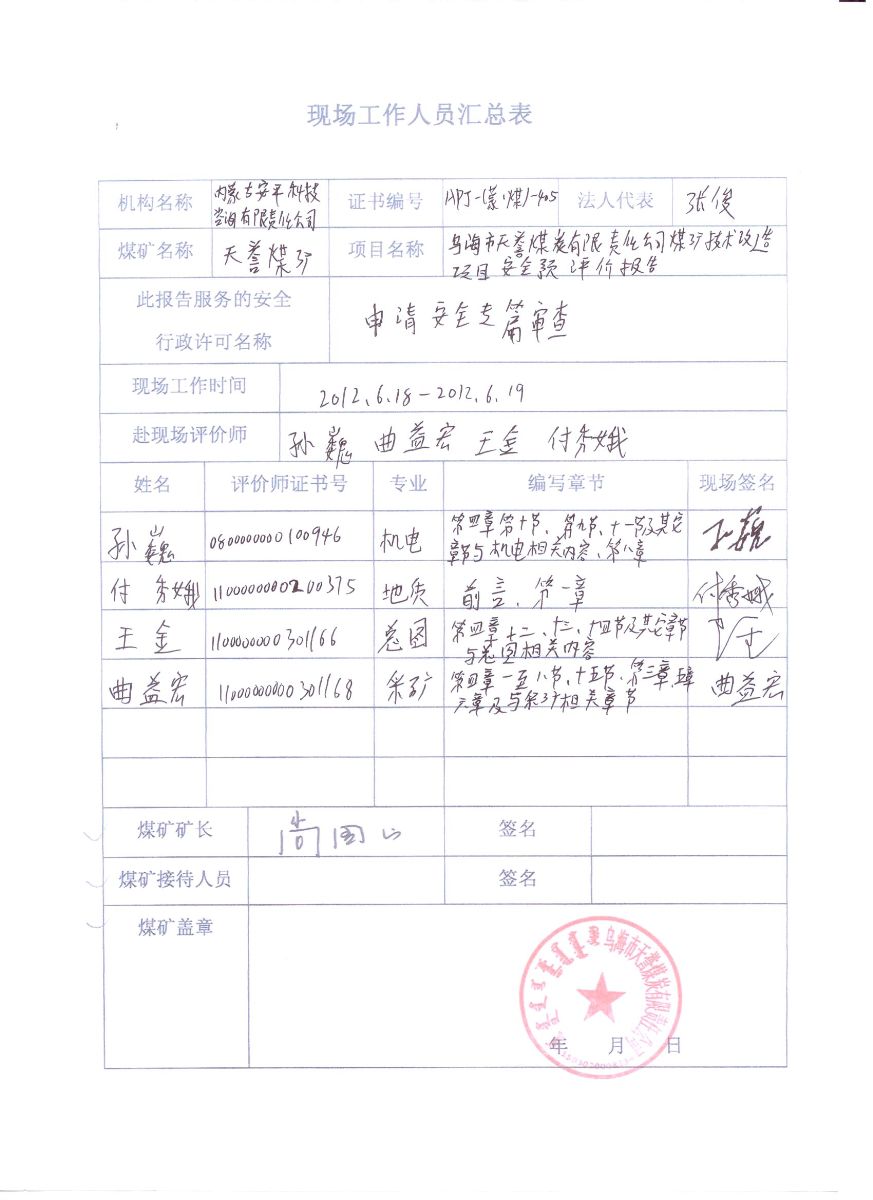 现场工作人员汇总表
机构名称 内蒙古安平科技 证书编号 APJ-(蒙·煤)-405 法人代表 张俊
咨询有限责任公司
煤矿名称 天誉煤矿 项目名称 乌海市天誉煤炭有限责任公司煤矿技术改造
项目安全预评价报告
此报告服务的安全
行政许可名称 申请安全专篇审查
现场工作时间 2012.6.18-2012.6.19
赴现场评价师 孙巍 曲益宏 王金 付秀娥
姓名 评价师证书号 专业 编写章节 现场签名
孙巍 0800000000100946 机电 第四章第十节、第九节、十一节及其它
章节与机电相关内容、第八章
付秀娥 1100000000200375 地质 前言、第一章 付秀娥
王金 1100000000301166 总图 第四章十二、十三、十四节及其它章节
与总图相关内容
曲益宏 1100000000301168 采矿 第四章一至八节、十五节、第三章、五章 曲益宏
六章及与采矿相关章节
煤矿矿长 尚国 签名
煤矿接待人员 签名
煤矿盖章
乌海市天誉煤炭有限责任公司
年 月 日